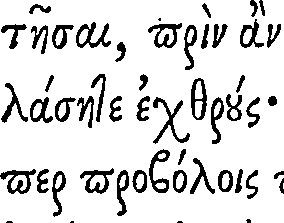 τῆσαι, ϖρὶν ἂν
λάσητε ἐχθρούς·
ϖερ ϖροβόλοις